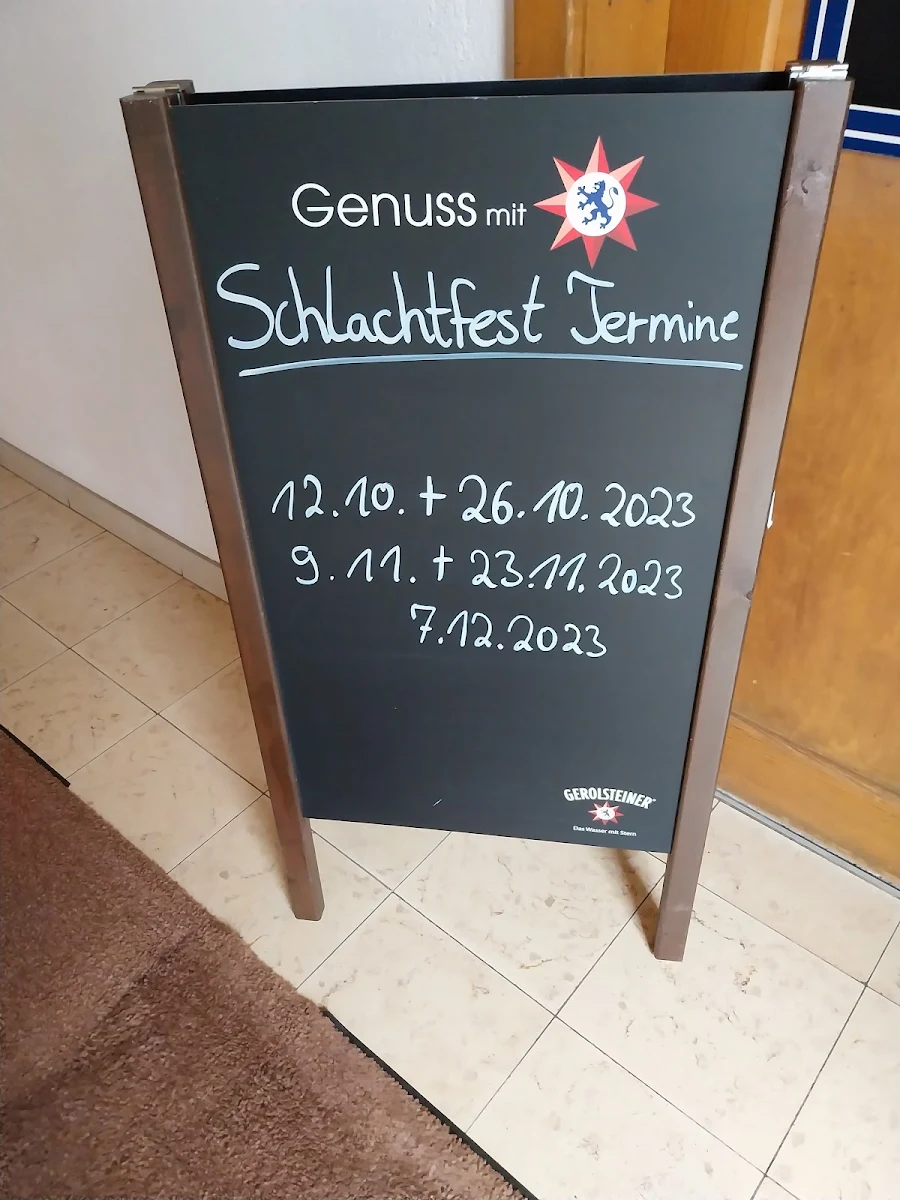 Genuss mit
Schlachtfest Termine
12.10. + 26.10.2023
9.11. + 23.11.2023
7.12.2023
GEROLSTEINER
Das Wasser mit Stern